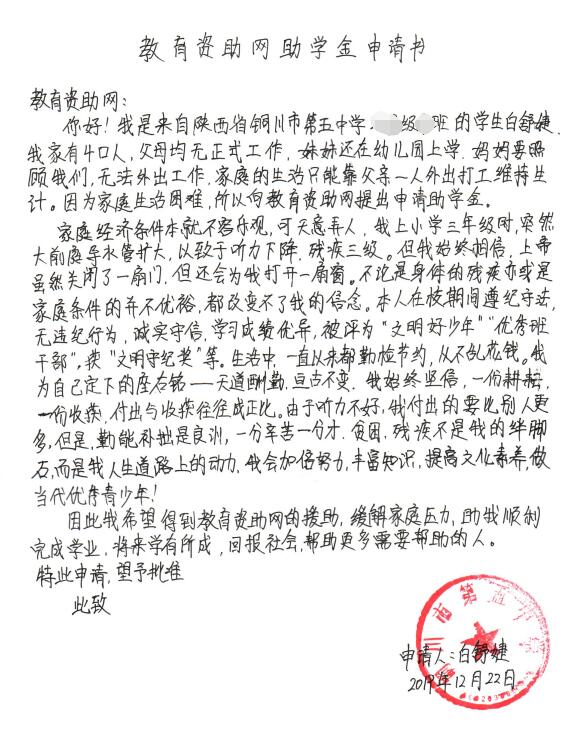 教育资助网助学金申请书
教育资助网：
你好！我是来自陕西省铜川市第五中学 级 班的学生白舒婕
我家有4口人，父母均无正式工作，妹妹还在幼儿园上学，妈妈要照
顾我们，无法外出工作，家庭的生活只能靠父亲一人外出打工维持生
计。因为家庭生活困难，所以向教育资助网提出申请助学金。
家庭经济条件本就不容乐观，可天意弄人，我上小学三年级时，突然
大前庭导水管扩大，以致于听力下降，残疾三级。但我始终相信，上帝
虽然关闭了一扇门，但还会为我打开一扇窗。不论是身体的残疾亦或是
家庭条件的并不优裕，都改变不了我的信念。本人在校期间遵纪守法，
无违纪行为，诚实守信，学习成绩优异，被评为“文明好少年”“优秀班
干部”，获“文明守纪奖”等。生活中，一直以来都勤俭节约，从不乱花钱。我
为自己定下的座右铭——天道酬勤，亘古不变，我始终坚信，一份耕耘，
一份收获，付出与收获往往成正比。由于听力不好，我付出的要比别人更
多，但是，勤能补拙是良训，一分辛苦一分才，贫困，残疾不是我的绊脚
石，而是我人生道路上的动力，我会加倍努力，丰富知识，提高文化素养，做
当代优秀青少年！
因此我希望得到教育资助网的援助，缓解家庭压力，助我顺利
完成学业，将来学有所成，回报社会，帮助更多需要帮助的人。
特此申请，望予批准
此致
申请人：白舒婕
2019年12月22日
铜川市第五中学